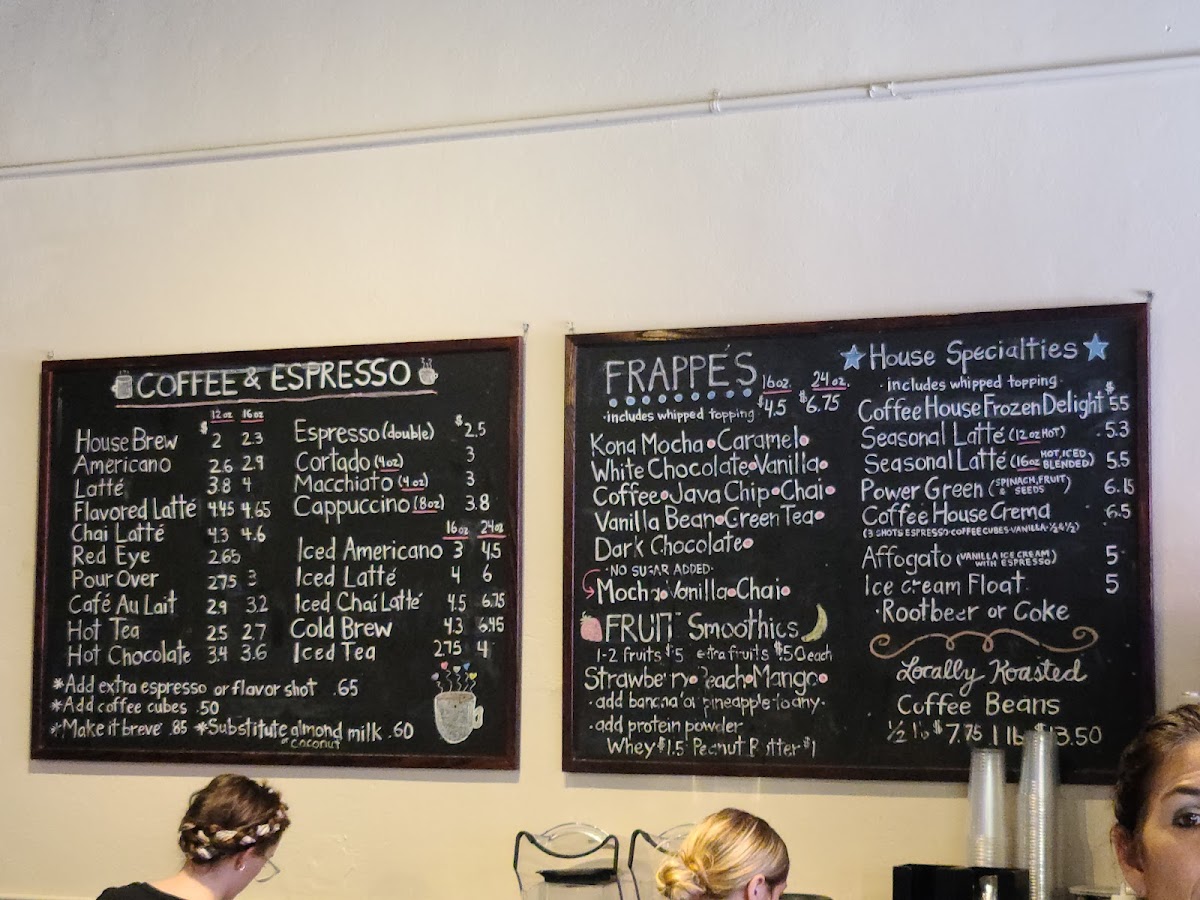 COFFEE & ESPRESSO
12 oz 16 oz
House Brew $2 2.3
Americano 2.6 2.9
Latté 3.8 4
Flavored Latté 4.45 4.65
Chai Latté 4.3 4.6
Red Eye 2.65
Pour Over 2.75 3
Café Au Lait 2.9 3.2
Hot Tea 2.5 2.7
Hot Chocolate 3.4 3.6
Espresso (double) $2.5
Cortado (4oz) 3
Macchiato (4oz) 3
Cappuccino (8oz) 3.8
16oz 24oz
Iced Americano 3 4.5
Iced Latté 4 6
Iced Chai Latté 4.5 6.75
Cold Brew 4.3 6.45
Iced Tea 2.75 4
*Add extra espresso or flavor shot .65
*Add coffee cubes .50
*Make it breve .85 *Substitute almond milk .60
or coconut
FRAPPÉS 16oz. 24oz.
•includes whipped topping $4.5 $6.75
Kona Mocha•Caramel•
White Chocolate•Vanilla•
Coffee•Java Chip•Chai•
Vanilla Bean•Green Tea•
Dark Chocolate•
•NO SUGAR ADDED•
Mocha•Vanilla•Chai•
FRUIT Smoothies
1-2 fruits $5 extra fruits $.50 each
Strawberry•Peach•Mango•
•add banana or pineapple to any•
•add protein powder
Whey $1.5 Peanut Butter $1
House Specialties
•includes whipped topping•
Coffee House Frozen Delight $5.5
Seasonal Latté (12oz HOT) 5.3
Seasonal Latté (16oz HOT, ICED BLENDED) 5.5
Power Green (SPINACH, FRUIT & SEEDS) 6.15
Coffee House Crema 6.5
(3 SHOTS ESPRESSO•COFFEE CUBES•VANILLA•½&½)
Affogato (VANILLA ICE CREAM WITH ESPRESSO) 5
Ice cream Float 5
•Rootbeer or Coke
Locally Roasted
Coffee Beans
½ lb $7.75 1 lb $13.50